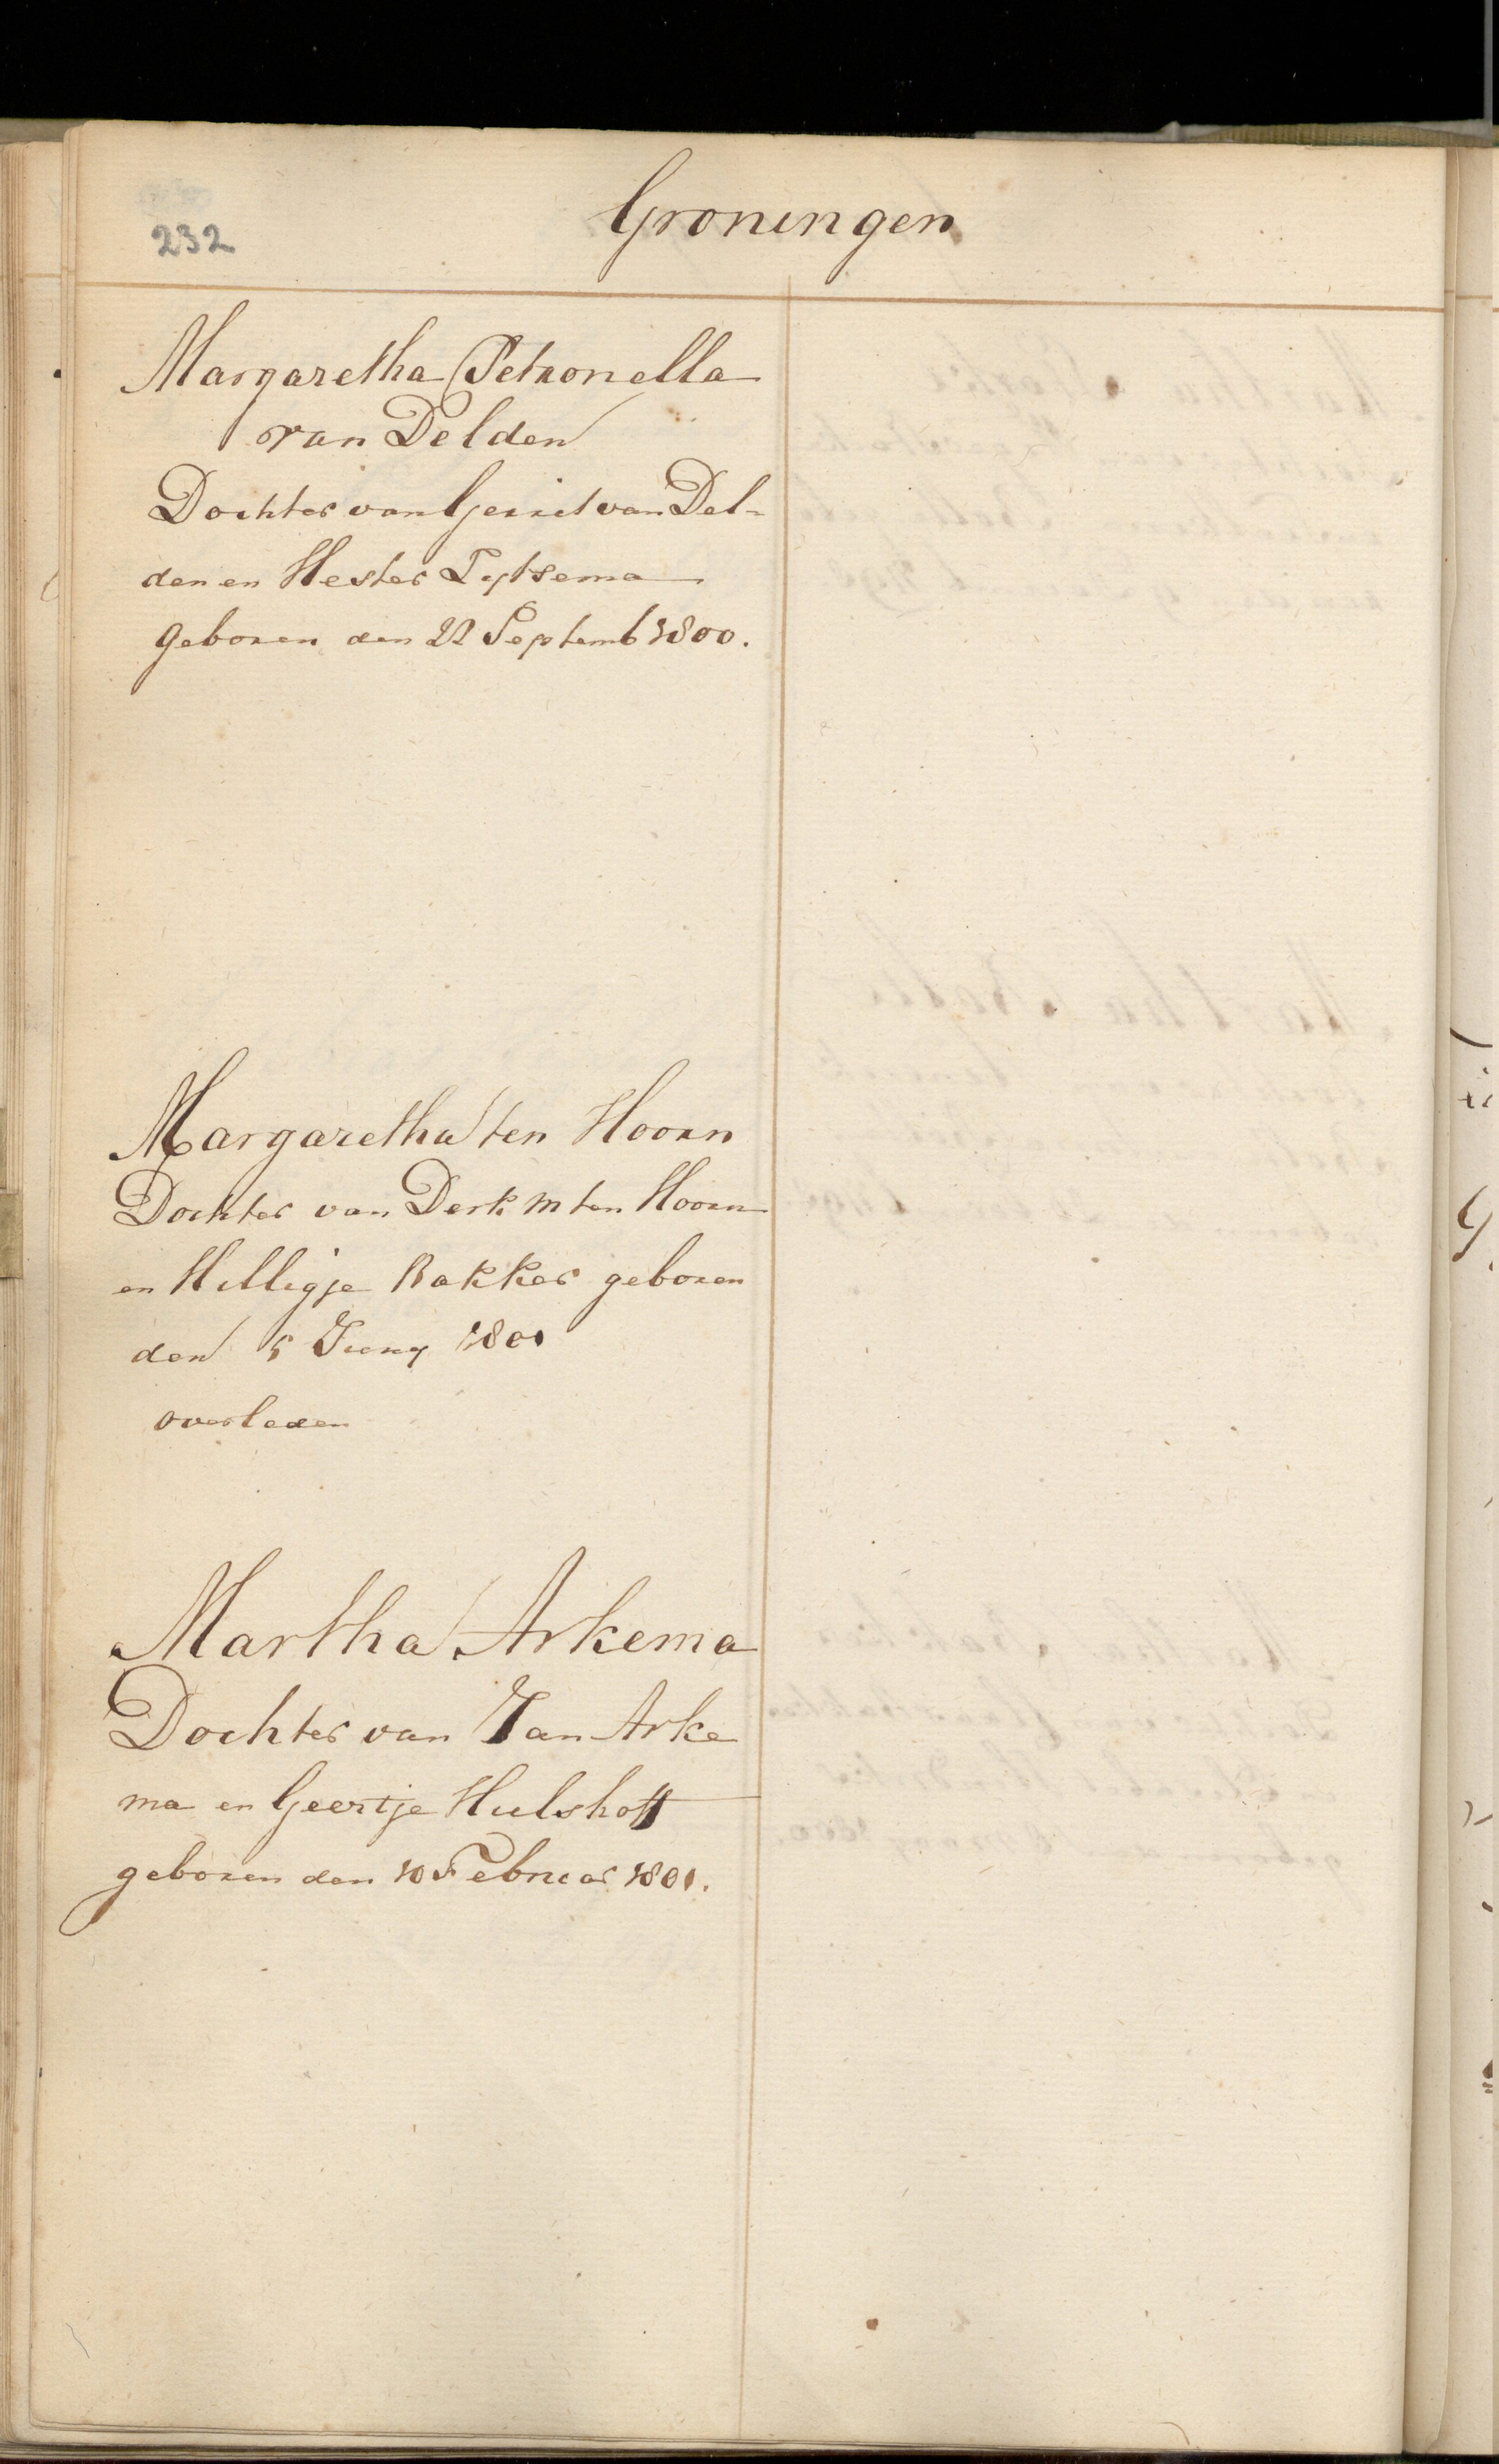 232
Groningen
Margaretha Petronella
van Delden
Dochter van Gerrit van Del-
den en Hester Tytsema
geboren den 22 Septemb 1800.
Margaretha ten Hoorn
Dochter van Derk M ten Hoorn
en Hilligje Bakker geboren
den 5 Juny 1801
overleden
Martha Arkema
Dochter van Jan Arke
ma en Geertje Hulshoff
geboren den 10 Februar 1801.